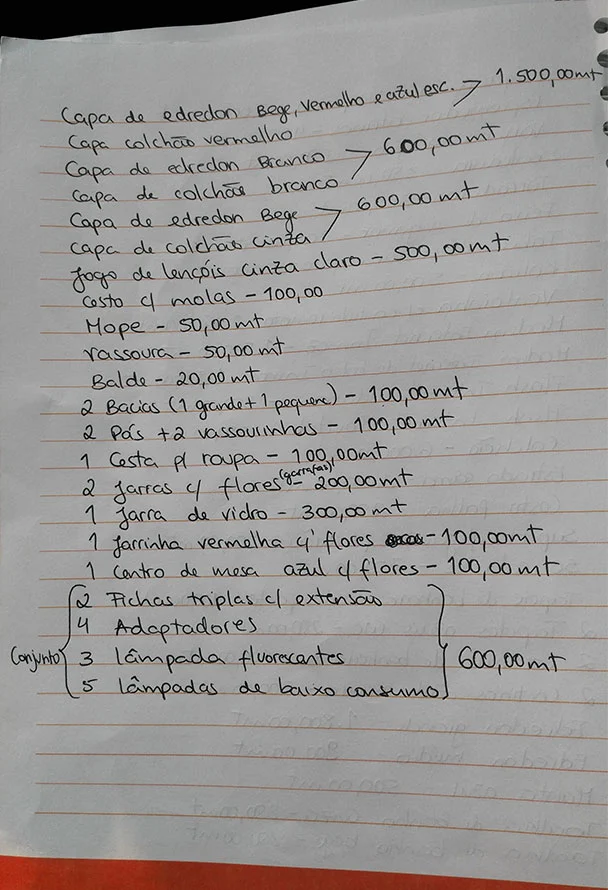 Capa de edredon Bege, vermelho e azul esc. > 1.500,00mt
Capa colchão vermelho
Capa de edredon Branco > 600,00mt
capa de colchão branco
Capa de edredon Bege > 600,00mt
capa de colchão cinza
Jogo de lençóis cinza claro - 500,00mt
Cesto c/ molas - 100,00
Mope - 50,00mt
vassoura - 50,00mt
Balde - 20,00mt
2 Bacias (1 grande + 1 pequena) - 100,00mt
2 Pás + 2 vassourinhas - 100,00mt
1 Cesta p/ roupa - 100,00mt
2 Jarras c/ flores (garrafas) - 200,00mt
1 Jarra de vidro - 300,00mt
1 Jarrinha vermelha c/ flores - 100,00mt
1 Centro de mesa azul c/ flores - 100,00mt
2 Fichas triplas c/ extensão
4 Adaptadores
Conjunto 3 lâmpada fluorescantes 600,00mt
5 lâmpadas de baixo consumo